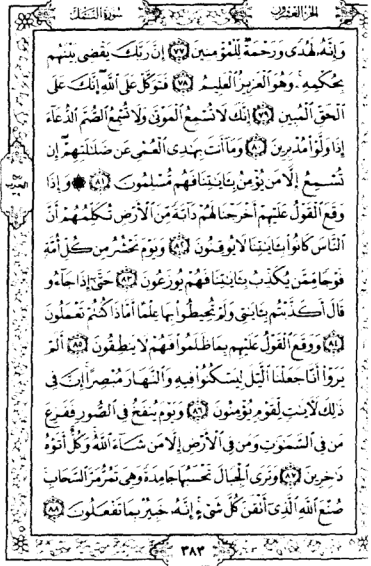 الجزء العشرون
سورة النمل
وَإِنَّهُۥ لَهُدًى وَرَحْمَةٌ لِّلْمُؤْمِنِينَ ٧٧ إِنَّ رَبَّكَ يَقْضِى بَيْنَهُم
بِحُكْمِهِۦ وَهُوَ ٱلْعَزِيزُ ٱلْعَلِيمُ ٧٨ فَتَوَكَّلْ عَلَى ٱللَّهِ إِنَّكَ عَلَى
ٱلْحَقِّ ٱلْمُبِينِ ٧٩ إِنَّكَ لَا تُسْمِعُ ٱلْمَوْتَىٰ وَلَا تُسْمِعُ ٱلصُّمَّ ٱلدُّعَآءَ
إِذَا وَلَّوْا۟ مُدْبِرِينَ ٨٠ وَمَآ أَنتَ بِهَـٰدِى ٱلْعُمْىِ عَن ضَلَـٰلَتِهِمْ إِن
تُسْمِعُ إِلَّا مَن يُؤْمِنُ بِـَٔايَـٰتِنَا فَهُم مُّسْلِمُونَ ٨١ ۞ وَإِذَا
وَقَعَ ٱلْقَوْلُ عَلَيْهِمْ أَخْرَجْنَا لَهُمْ دَآبَّةً مِّنَ ٱلْأَرْضِ تُكَلِّمُهُمْ أَنَّ
ٱلنَّاسَ كَانُوا۟ بِـَٔايَـٰتِنَا لَا يُوقِنُونَ ٨٢ وَيَوْمَ نَحْشُرُ مِن كُلِّ أُمَّةٍ
فَوْجًا مِّمَّن يُكَذِّبُ بِـَٔايَـٰتِنَا فَهُمْ يُوزَعُونَ ٨٣ حَتَّىٰٓ إِذَا جَآءُو
قَالَ أَكَذَّبْتُم بِـَٔايَـٰتِى وَلَمْ تُحِيطُوا۟ بِهَا عِلْمًا أَمَّاذَا كُنتُمْ تَعْمَلُونَ
٨٤ وَوَقَعَ ٱلْقَوْلُ عَلَيْهِم بِمَا ظَلَمُوا۟ فَهُمْ لَا يَنطِقُونَ ٨٥ أَلَمْ
يَرَوْا۟ أَنَّا جَعَلْنَا ٱلَّيْلَ لِيَسْكُنُوا۟ فِيهِ وَٱلنَّهَارَ مُبْصِرًا إِنَّ فِى
ذَٰلِكَ لَـَٔايَـٰتٍ لِّقَوْمٍ يُؤْمِنُونَ ٨٦ وَيَوْمَ يُنفَخُ فِى ٱلصُّورِ فَفَزِعَ
مَن فِى ٱلسَّمَـٰوَٰتِ وَمَن فِى ٱلْأَرْضِ إِلَّا مَن شَآءَ ٱللَّهُ وَكُلٌّ أَتَوْهُ
دَٰخِرِينَ ٨٧ وَتَرَى ٱلْجِبَالَ تَحْسَبُهَا جَامِدَةً وَهِىَ تَمُرُّ مَرَّ ٱلسَّحَابِ
صُنْعَ ٱللَّهِ ٱلَّذِىٓ أَتْقَنَ كُلَّ شَىْءٍ إِنَّهُۥ خَبِيرٌۢ بِمَا تَفْعَلُونَ ٨٨
٣٨٣